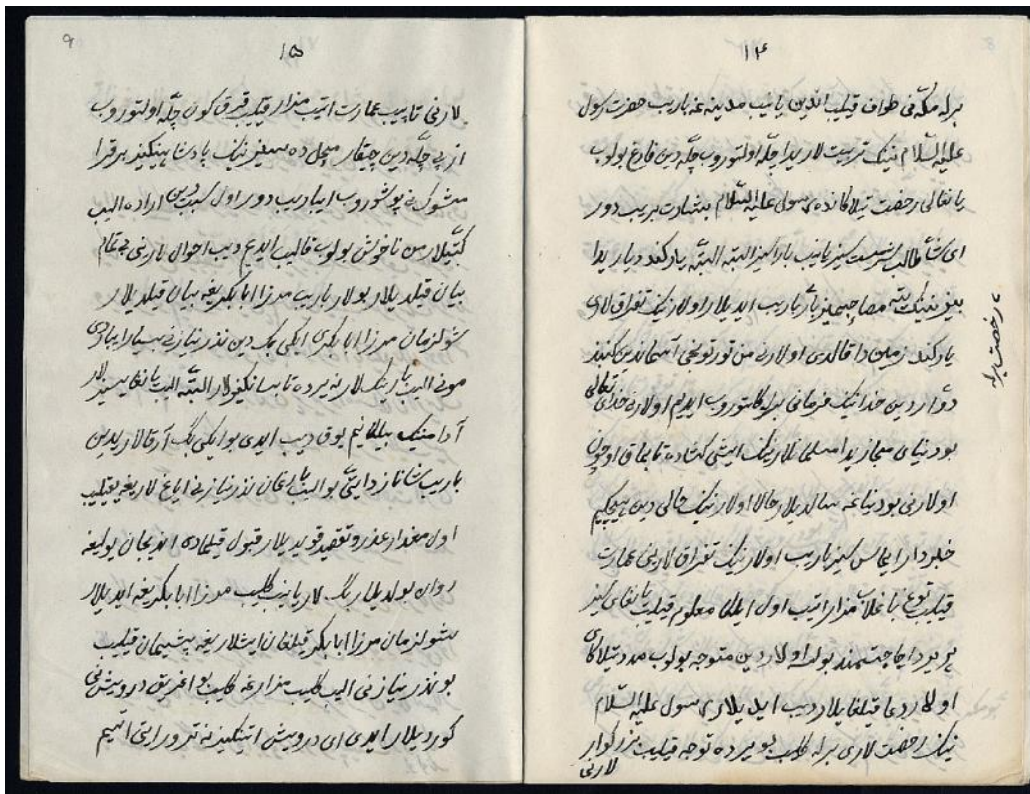 ۱۴
برله مکه نی طواف قیلیب اندین یانیب مدینه غه باریب حضرت رسول
علیه السلام نینک تربیت لاریدا چله اولتوروب چله دین فارغ بولوب
یانغالی رخصت تیلاکانده رسول علیه السلام بشارت بریب دور
ای طالب سیز یانیب بارینکیز البته البته یارکند دیاریدا
یتی مصاحبیمیز بار باریب ایدیلار اولارنینک تفراق لاری
یارکند زمین دا قالدی اولارنی من تورتونجی آسماندین کنبد
دواردین خدانینک فرمانی برله کلتوروب ایدیم اولارنی خدای تعالی
بو دنیای مجازیدا مسلمانلارنینک ایشی کشاده تابماق اوچون
اولارنی بو دنیاغه سالدیلار حالا اولارنینک حالی دین هیچکیم
خبردار ایماس سیز باریب اولارنینک تفراق لارینی عمارت
قیلیب توغ باغلاب مزار ایتیب اول ایلکا معلوم قیلیب یانغای سیز
هر یردا حاجتمند بولسه اولاردین متوجه بولوب مدد تیلاکای
اولار دعا قیلغایلار دیب ایدیلار رسول علیه السلام
نینک رخصت لاری برله کلیب بو یرده توجه قیلیب بزرکوار
لارنی
رخصت برله
۱۵
لارنی تاپیب عمارت ایتیب مزار قیلیب قیرق کون چله اولتوروب
از بی چله دین چیقار محل ده سیز نینک پادشاهینکیز بر قرا
مشوک نی پوشوروب ایباریب دور اول سبب دین اراده الیب
کیتیلار من ناخوش بولوب قالیب ایدیم دیب احوال لارنی تمام
بیان قیلدیلار بولار باریب مرزا ابابکریغه بیان قیلدیلار
شول زمان مرزا ابابکری ایکی بک دین نذر نیازنی بسیار ایباردی
مونی الیب بارینک لار نه یرده تابسانکیزلار البته الیب یانغایسیزلار
آدامنینک بیلکانیم یوق دیب ایدی بو ایکی بک آرقالاریدین
باریب بو الیب بارغان نذر نیازنی ایاغ لاریغه یقیلیب
اول مقدار عذر و تقصیر قویدیلار قبول قیلمادی اندیجان یولیغه
روان بولدیلار بک لار یانیب کلیب مرزا ابابکریغه ایدیلار
شول زمان مرزا ابابکر قیلغان ایشلاریغه پشیمان قیلیب
بو نذر نیازنی الیب کلیب مزارغه کلیب بو اغریق درویش نی
کوردیلار ایدی ای درویش ایتینکیز نه تور ایتی اتیم